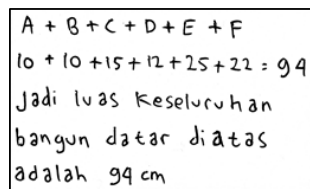 A + B + C + D + E + F
10 + 10 + 15 + 12 + 25 + 22 = 94
Jadi luas keseluruhan
bangun datar diatas
adalah 94 cm